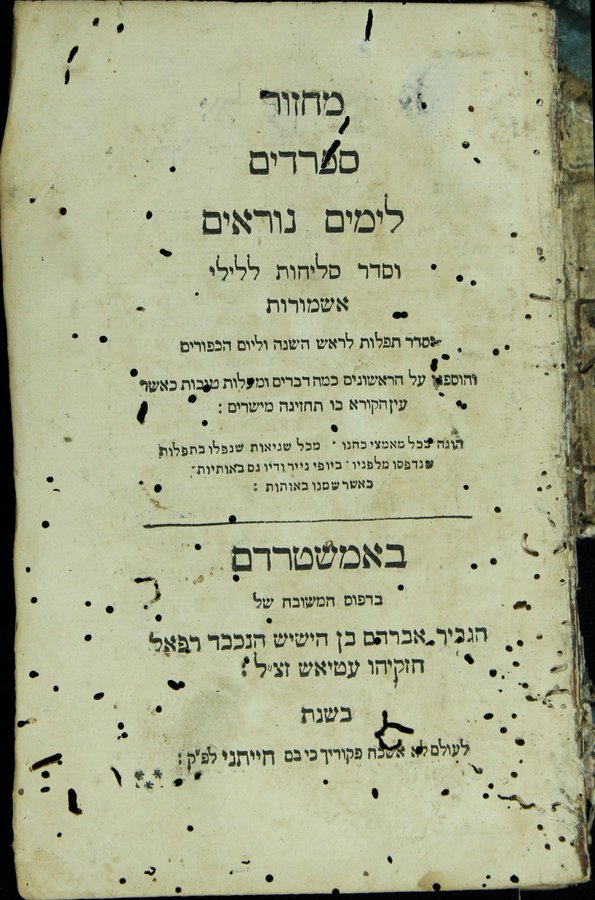 מחזור
ספרדים
לימים נוראים
וסדר סליחות ללילי
אשמורות
וסדר תפלות לראש השנה וליום הכפורים
והוספנו על הראשונים כמה דברים ומעלות טובות כאשר
עין הקורא בו תחזינה מישרים :
הוגה בכל מאמצי כחנו · מכל שגיאות שנפלו בתפלות
שנדפסו מלפניו · ביופי נייר ודיו גם באותיות ·
כאשר שמנו באותות :
באמשטרדם
בדפוס המשובח של
הגביר אברהם בן הישיש הנכבד רפאל
חזקיהו עטיאש זצ״ל :
בשנת
לעולם לא אשכח פקודיך כי בם חייתני לפ״ק :